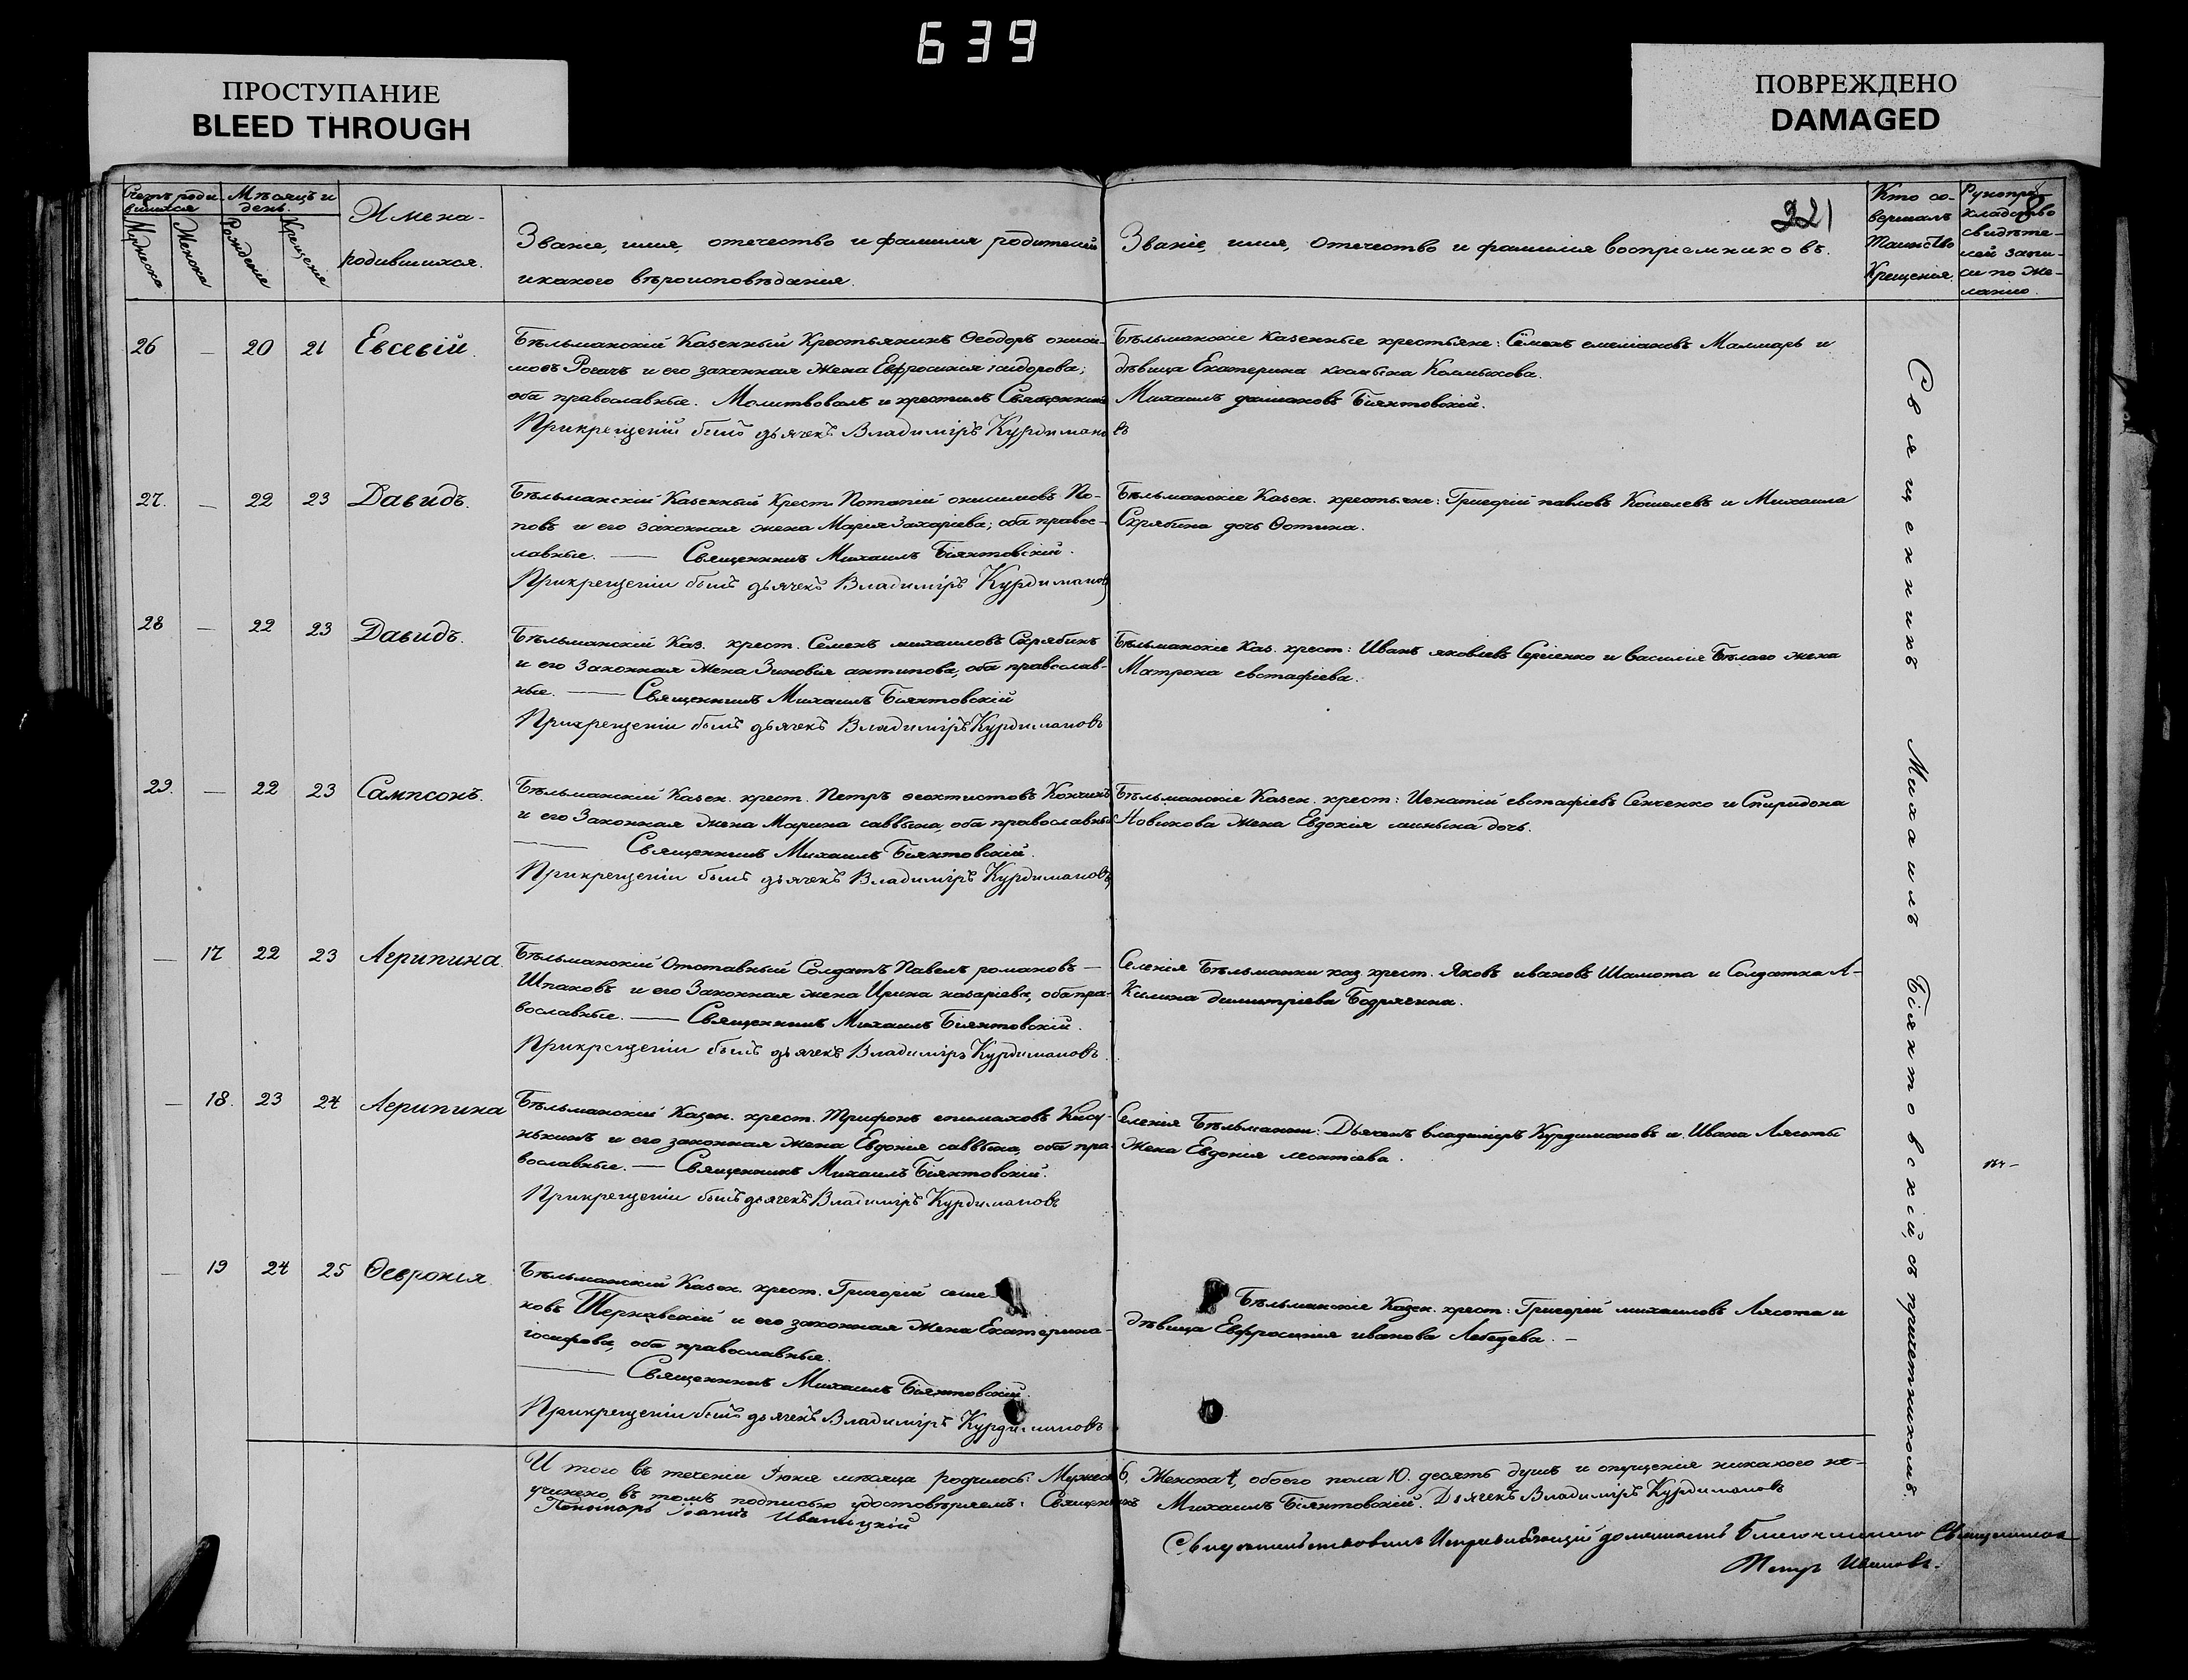 639
ПРОСТУПАНИЕ
BLEED THROUGH
ПОВРЕЖДЕНО
DAMAGED
221
Счетъ роди-
вшихся
Мужеска
Женска
Мѣсяцъ и
день.
Рожденіе
Крещеніе
Имена
родившихся.
Званіе, имя, отечество и фамилия родителей
и какого вѣроисповѣданія.
Званіе, имя, отечество и фамилія восприемниковъ.
Кто со-
вершалъ
таинство
Крещенія.
Рукопри-
кладство
свидѣте-
лей запи-
си по же-
ланію.
26 — 20 21 Евсевій.
Бѣльманскій Казенный Крестьянинъ Ѳеодоръ
мовъ Рогачъ и его законная жена Евфросинія ісидорова;
оба православные. Молитвовалъ и крестилъ Священникъ
Прикрещеній былъ дьячекъ Владиміръ Курдимано
Бѣльманскіе Казенные крестьяне: Семенъ емеліановъ Малмарь и
дѣвица Екатерина космына Колмыкова.
Михаилъ даміановъ Біянтовскій.
въ
27. — 22 23 Давидъ.
Бѣльманскій Казенный Крест. Потапій онисимовъ По-
повъ и его законная жена Мария Захаріева; оба право-
лавные. — Священникъ Михаилъ Біянтовскій.
Прикрещеніи былъ дьячекъ Владиміръ Курдимановъ
Бѣльманскіе Казен. крестьяне: Григорій павловъ Кошелевъ и Михаила
Скрябина дочь Фотина.
28 — 22 23 Давидъ.
Бѣльманскій Каз. крест. Семенъ михаиловъ Скрябинъ
и его Законная жена Зиновія антипова, оба православ-
ные. — Священникъ Михаилъ Біянтовскій
Прикрещеніи былъ дьячекъ Владиміръ Курдимановъ
Бѣльманскіе Каз. крест: Иванъ яковлевъ Сергіенко и Василія Бѣлаго жена
Матрона евстафіева.
29. — 22 23 Сампсонъ.
Бѣльманскій Казен. крест. Петръ ѳеоктистовъ Кончинъ
и его Законная жена Марина саввына, оба православны
— Священникъ Михаилъ Біянтовскій.
Прикрещеніи былъ дьячекъ Владиміръ Курдимановъ
Бѣльманскіе Казен. крест: Игнатій евстафіевъ Сенченко и Спиридона
Новикова жена Евдокія минына дочь.
— 17 22 23 Агрипина.
Бѣльманскій Отставный Солдатъ Павелъ романовъ —
Шпаковъ и его Законная жена Ирина назаріева, оба пра-
вославные. — Священникъ Михаилъ Біянтовскій.
Прикрещеніи былъ дьячекъ Владиміръ Курдимановъ.
Селенія Бѣльманки каз. крест. Яковъ ивановъ Шамота и Солдатка А-
килина димитріева Бодрягина.
— 18. 23 24 Агрипина
Бѣльманскій Казен. крест. Трифонъ епимаховъ Кису-
нькинъ и его законная жена Евдокія саввына, оба пра-
вославные. — Священникъ Михаилъ Біянтовскій.
Прикрещеніи былъ дьячекъ Владиміръ Курдимановъ
Селенія Бѣльманки: Дьячекъ владиміръ Курдимановъ и Ивана Лясоты
жена Евдокія леонтіева.
— 19 24 25 Ѳевронія.
Бѣльманскій Казен. крест. Григорій семе-
новъ Тернавскій и его законная жена Екатерина
іосифова, оба православные.
— Священникъ Михаилъ Біянтовскій.
Прикрещеніи былъ дьячекъ Владиміръ Курдимановъ
Бѣльманскіе Казен. крест: Григорій михаиловъ Лясота и
дѣвица Евфросинія иванова Лебедева. —
Священникъ Михаилъ Біянтовскій, съ причетникомъ.
И того въ теченіи Іюня мѣсяца родилось: Мужеска 6, Женска 4, обоего пола 10. десять душъ и опущенія никакого не-
учинено, въ томъ подписью удостовѣряемъ: Священникъ Михаилъ Біянтовскій. Дьячекъ Владиміръ Курдимановъ
Пономарь Іоаннъ Иваницкій
Свидетельствовалъ Исправляющій должность Благочиннаго Священникъ
Петръ Ивановъ.